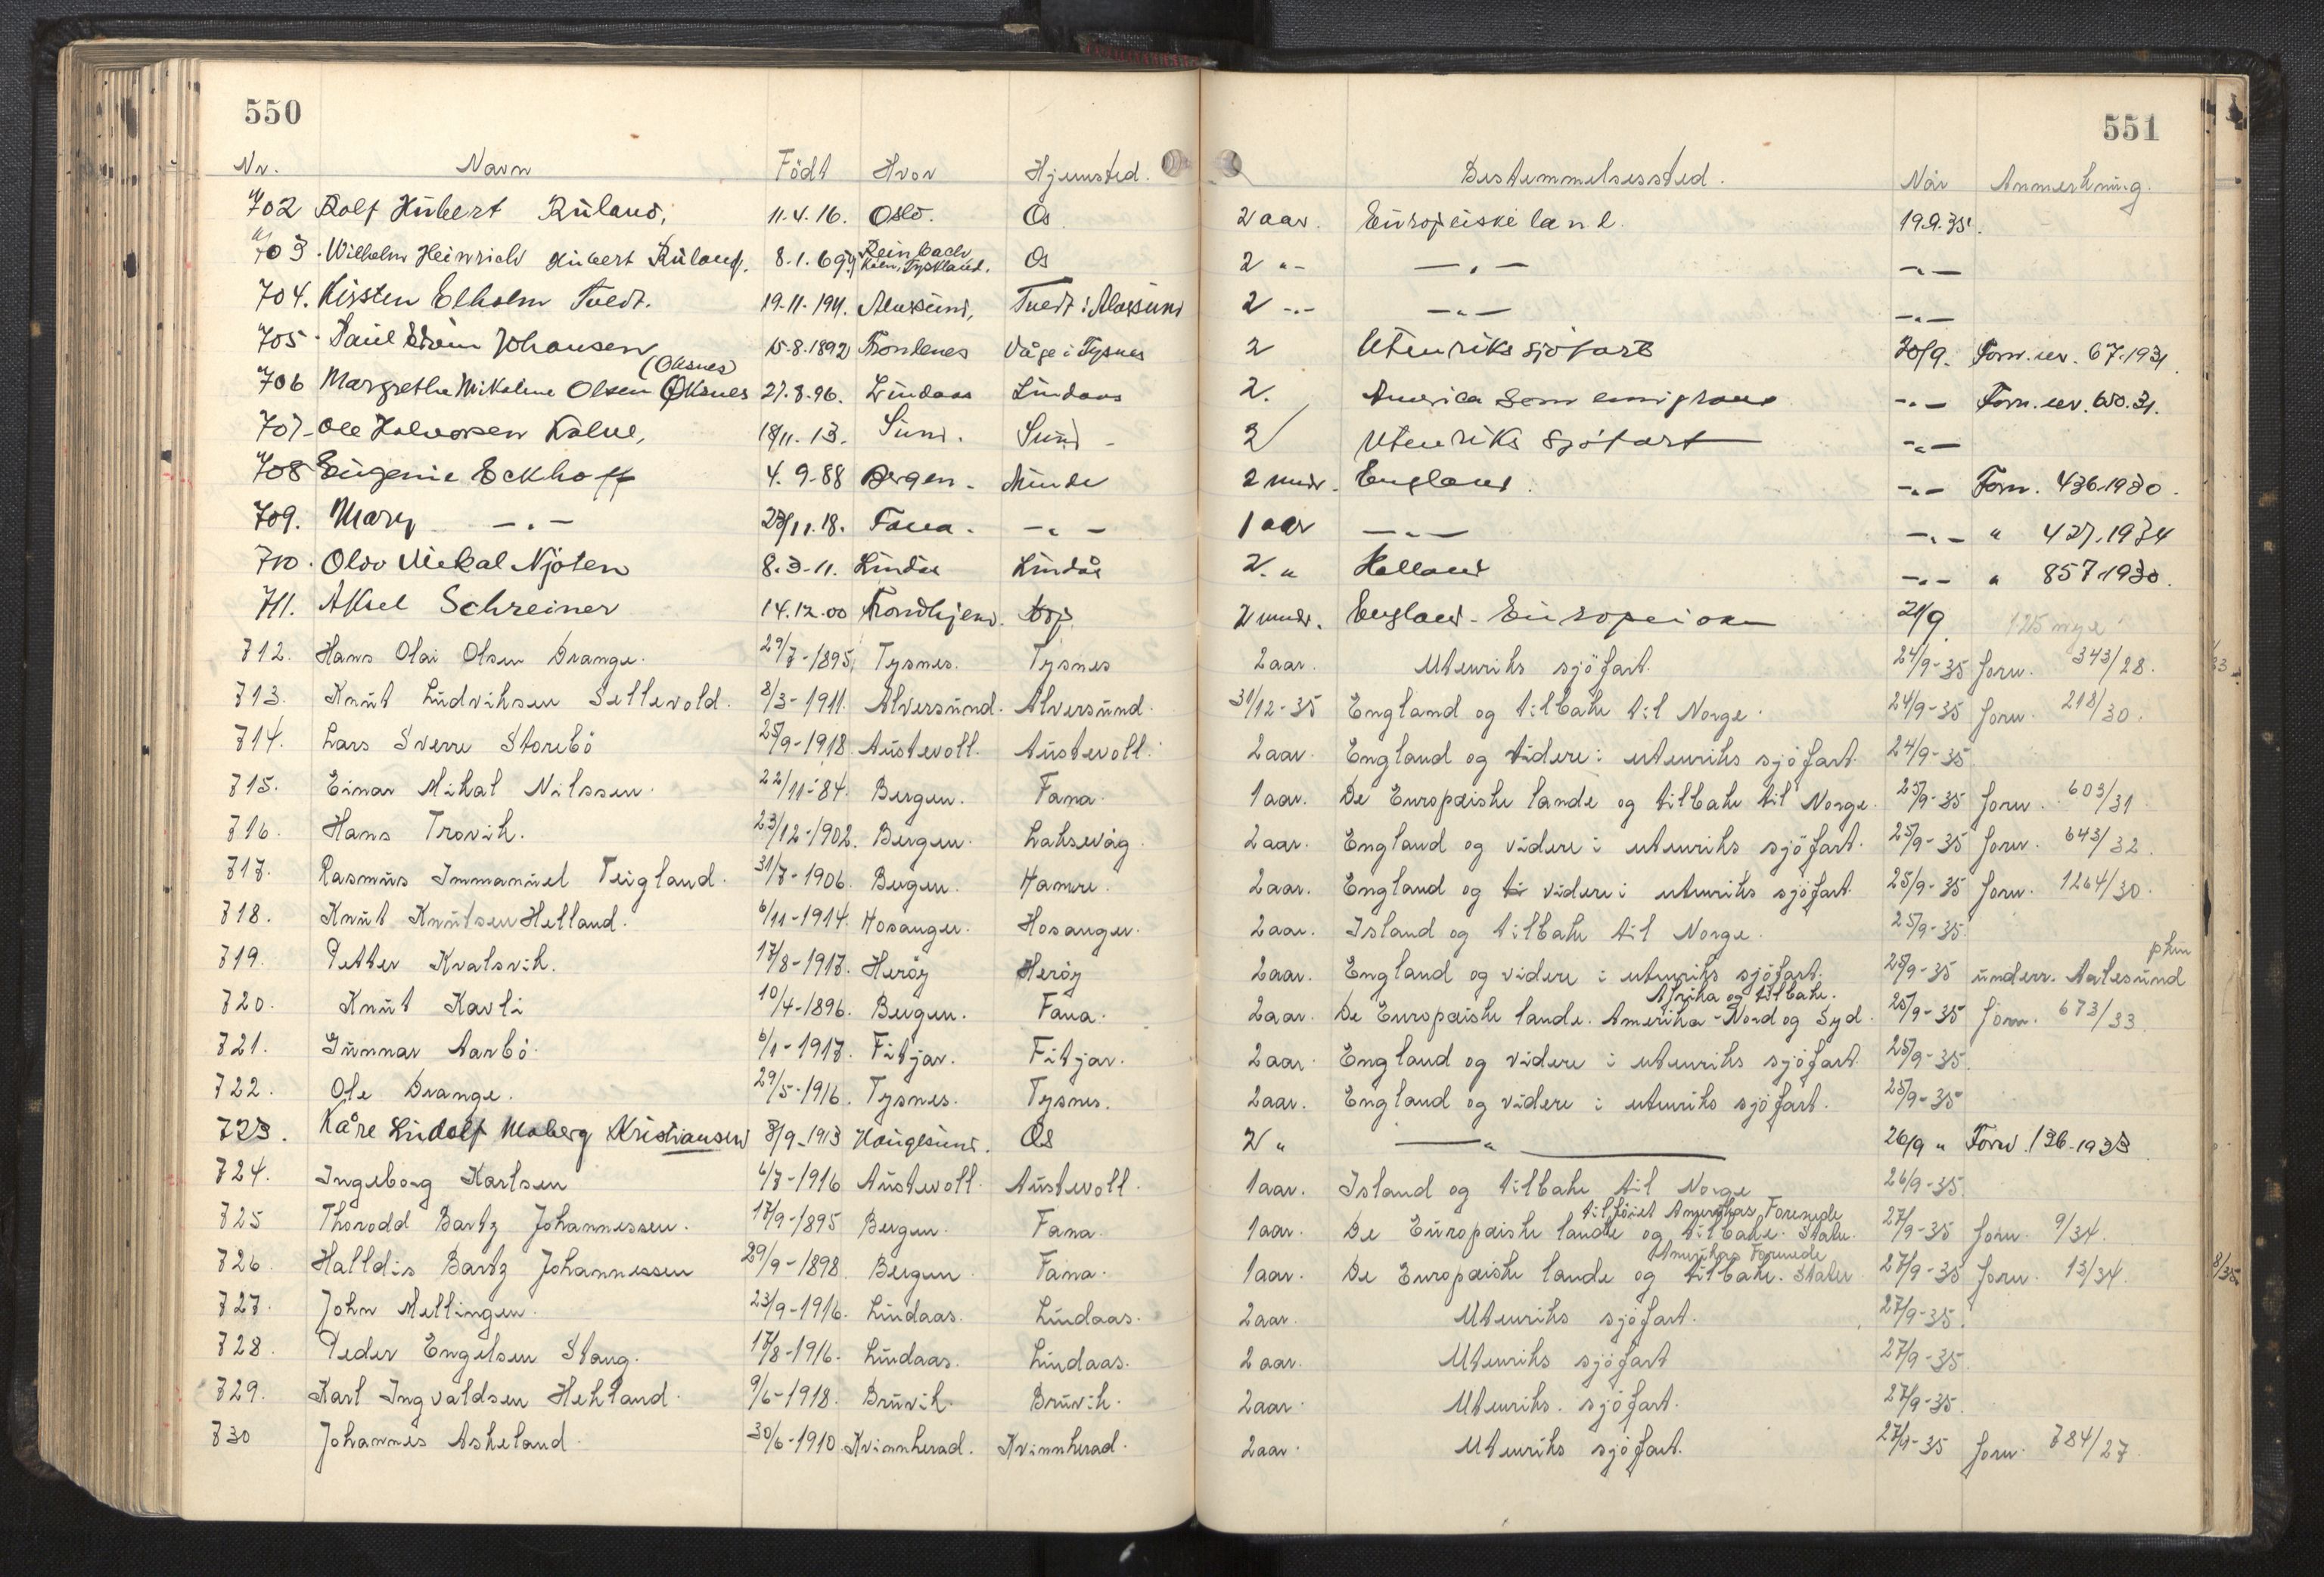 550
551
Nr. Navn Födt Hvor Hjemsted. Bestemmelsessted. Når Anmerkning.
702 Rolf Hübert Rüland, 11.4.16. Oslo. Os 2 aar. Europeiske land. 19.9.35.
703. Wilhelm Heinrich Hübert Rüland. 8.1.69 Reinbach Köln, Tyskland. Os 2 "- -"- -"-
704. Kirsten Elholm Tvedt. 19.11.1911. Tvedt i 2 -"- -"- -"-
705. Johansen 15.8.1892 Trondenes Våge i Tysnes 2 Utenriks sjöfart 20/9. Forn. 67.1931.
(Oksnes)
706 Margrethe Mikaline Olsen Öksnes 27.8.96. Lindaas Lindaas 2. America som emigrant -"- Forn. 650.31.
707. Ole Halvorsen Kalve, 18/11.13. Sund. Sund 2 Utenriks Sjöfart -"-
708 Eugenie Eckhoff 4.9.88 Bergen. Minde 2 mndr. England. -"- Forn. 436.1930.
709. Mary -"- 23/11.18. Fana. -"- 1 aar -"- -"- " 427.1934
710. Olav Mikal Njöten 8.3.11. Lindås Lindås 2. " Holland -"- " 857.1930.
711. Aksel Schreiner 14.12.00 Trondhjem. 2 mndr. England - 21/9. 125 nye
712. Hans Olai Olsen Drange. 29/7-1895. Tysnes. Tysnes 2 aar. Utenriks sjöfart. 24/9-35 forn. 343/28.
713. Knut Ludviksen Sellevold. 8/3-1911. Alversund. Alversund. 31/12-35 England og tilbake til Norge. 24/9-35 forn. 218/30.
714. Lars Sverre Storebö 25/9-1918. Austevoll. Austevoll. 2 aar. England og videre i utenriks sjöfart. 24/9-35.
715. Einar Mikal Nilssen. 22/11-84. Bergen. Fana. 1 aar. De Europæiske lande og tilbake til Norge. 25/9-35 forn. 603/31
716. Hans Trovik. 23/12-1902. Bergen. Laksevåg. 2 aar. England og videre i utenriks sjöfart. 25/9-35 forn. 643/32.
717. Rasmus Immanuel Teigland. 31/7-1906. Bergen. Hamre. 2 aar. England og ti videre i utenriks sjöfart. 25/9-35 forn. 1264/30.
718. Knut Knutsen Helland. 6/11-1914. Hosanger. Hosanger. 2 aar. Island og tilbake til Norge. 25/9-35.
719. Petter Kvalsvik. 17/8-1917. Heröy Heröy 2 aar. England og videre i utenriks sjöfart. 25/9-35 underr. Aalesund
Afrika og tilbake.
720. Knut Kavli 10/4-1896. Bergen. Fana. 2 aar. De Europæiske lande. Amerika - Nord og Syd. 25/9-35 forn. 673/33
721. Gunnar Aarbö. 6/1-1917. Fitjar. Fitjar. 2 aar. England og videre i utenriks sjöfart. 25/9-35.
722. Ole Drange. 29/5-1916. Tysnes. Tysnes. 2 aar. England og videre i utenriks sjöfart. 25/9-35
723. Kåre Lüdolf Moberg Kristiansen 8/9-1913 Haugesund. Os 2 " -"- 26/9 " Forn. 136-1933
724. Ingeborg Karlsen 6/7-1916 Austevoll. Austevoll. 1 aar. Island og tilbake til Norge 26/9-35.
tilföiet Amerikas Forenede
725 Thorodd Bartz Johannessen. 17/9-1895 Bergen. Fana. 1 aar. De Europæiske lande og tilbake. Stater. 27/9-35 forn. 9/34.
Amerikas Forenede
726. Halldis Bartz Johannessen 29/9-1898. Bergen. Fana. 1 aar. De Europæiske lande og tilbake. Stater 27/9-35 forn. 13/34.
727. John Mellingen. 23/9-1916. Lindaas. Lindaas. 2 aar. Utenriks sjöfart. 27/9-35.
728. Peder Engelsen Stang. 17/8-1916. Lindaas. Lindaas. 2 aar. Utenriks sjöfart 27/9-35.
729. Karl Ingvaldsen Hekland. 9/6-1918. Bruvik. Bruvik. 2 aar. Utenriks. sjöfart. 27/9-35.
730 Johannes Askeland. 30/6-1910. Kvinnherad. Kvinnherad. 2 aar. Utenriks sjöfart. 27/9-35 forn. 784/27.